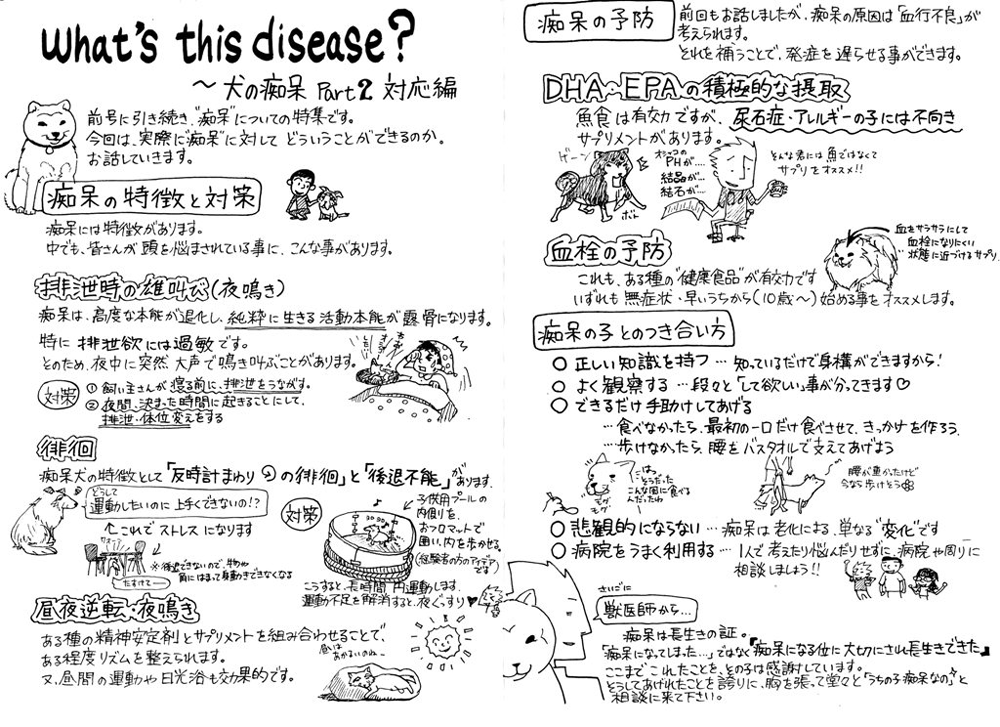 What's this disease?
～犬の痴呆 Part2 対応編
前号に引き続き、"痴呆"についての特集です。
今回は、実際に"痴呆"に対して どういうことができるのか。
お話していきます。
痴呆の特徴と対策
痴呆には特徴があります。
中でも、皆さんが 頭を悩まされている事に、こんな事があります。
排泄時の雄叫び(夜鳴き)
痴呆は、高度な本能が退化し、純粋に生きる活動本能が露骨になります。
特に 排泄欲には過敏です。
そのため、夜中に突然 大声で鳴き叫ぶことがあります。
対策
① 飼い主さんが 寝る前に、排泄をうながす。
② 夜間、決まった時間に起きることにして、
排泄・体位変えをする
徘徊
痴呆犬の特徴として「反時計まわりの徘徊」と「後退不能」があります。
どうして
運動したいのに 上手くできないの!?
↑これで ストレスになります
※後退できないので、物や
角にはまって身動きできなくなる
たすけてー
対策
子供用プールの
内側を、
おフロマットで
囲い、内を歩かせる。
(経験者の方のアイデア)
です
こうすると、長時間 円運動します。
運動不足を解消すると、夜ぐっすり♥
昼夜逆転・夜鳴き
ある種の精神安定剤とサプリメントを組み合わせることで、
ある程度リズムを整えられます。
又、昼間の運動や日光浴も効果的です。
昼は
あかるいのねー
痴呆の予防
前回もお話しましたが、痴呆の原因は「血行不良」が
考えられます。
それを補うことで、発症を遅らせる事ができます。
DHA・EPAの積極的な摂取
魚食は有効ですが、尿石症・アレルギーの子には不向き
サプリメントがあります。
ゲーン
オシッコの
PHが…
結晶が…
結石が…
そんな君には魚ではなくて
サプリをオススメ!!
血栓の予防
これも、ある種の"健康食品"が有効です
いずれも 無症状・早いうちから(10歳～)始める事をオススメします。
血をサラサラにして
血栓になりにくい
状態に近づけるサプリ
痴呆の子とのつき合い方
○ 正しい知識を持つ …知っているだけで身構ができますから!
○ よく観察する …段々と「して欲しい」事が分ってきます♡
○ できるだけ手助けしてあげる
…食べなかったら、最初の一口だけ食べさせて、きっかけを作ろう。
…歩けなかったら、腰をバスタオルで支えてあげよう
はっ
そうだった
こんな風に食べる
んだったわ
モグ
モグ
腰が重かったけど
今なら歩けそう
○ 悲観的にならない …痴呆は老化による、単なる"変化"です
○ 病院をうまく利用する …1人で考えたり悩んだりせずに、病院や周りに
相談しましょう!!
さいごに
獣医師から…
痴呆は長生きの証。
「痴呆になってしまった…」ではなく「痴呆になる位に大切にされ長生きできた」
ここまでこれたことを、その子は感謝しています。
そうしてあげれたことを誇りに、胸を張って堂々と「うちの子 痴呆なの♪」と
相談に来て下さい。